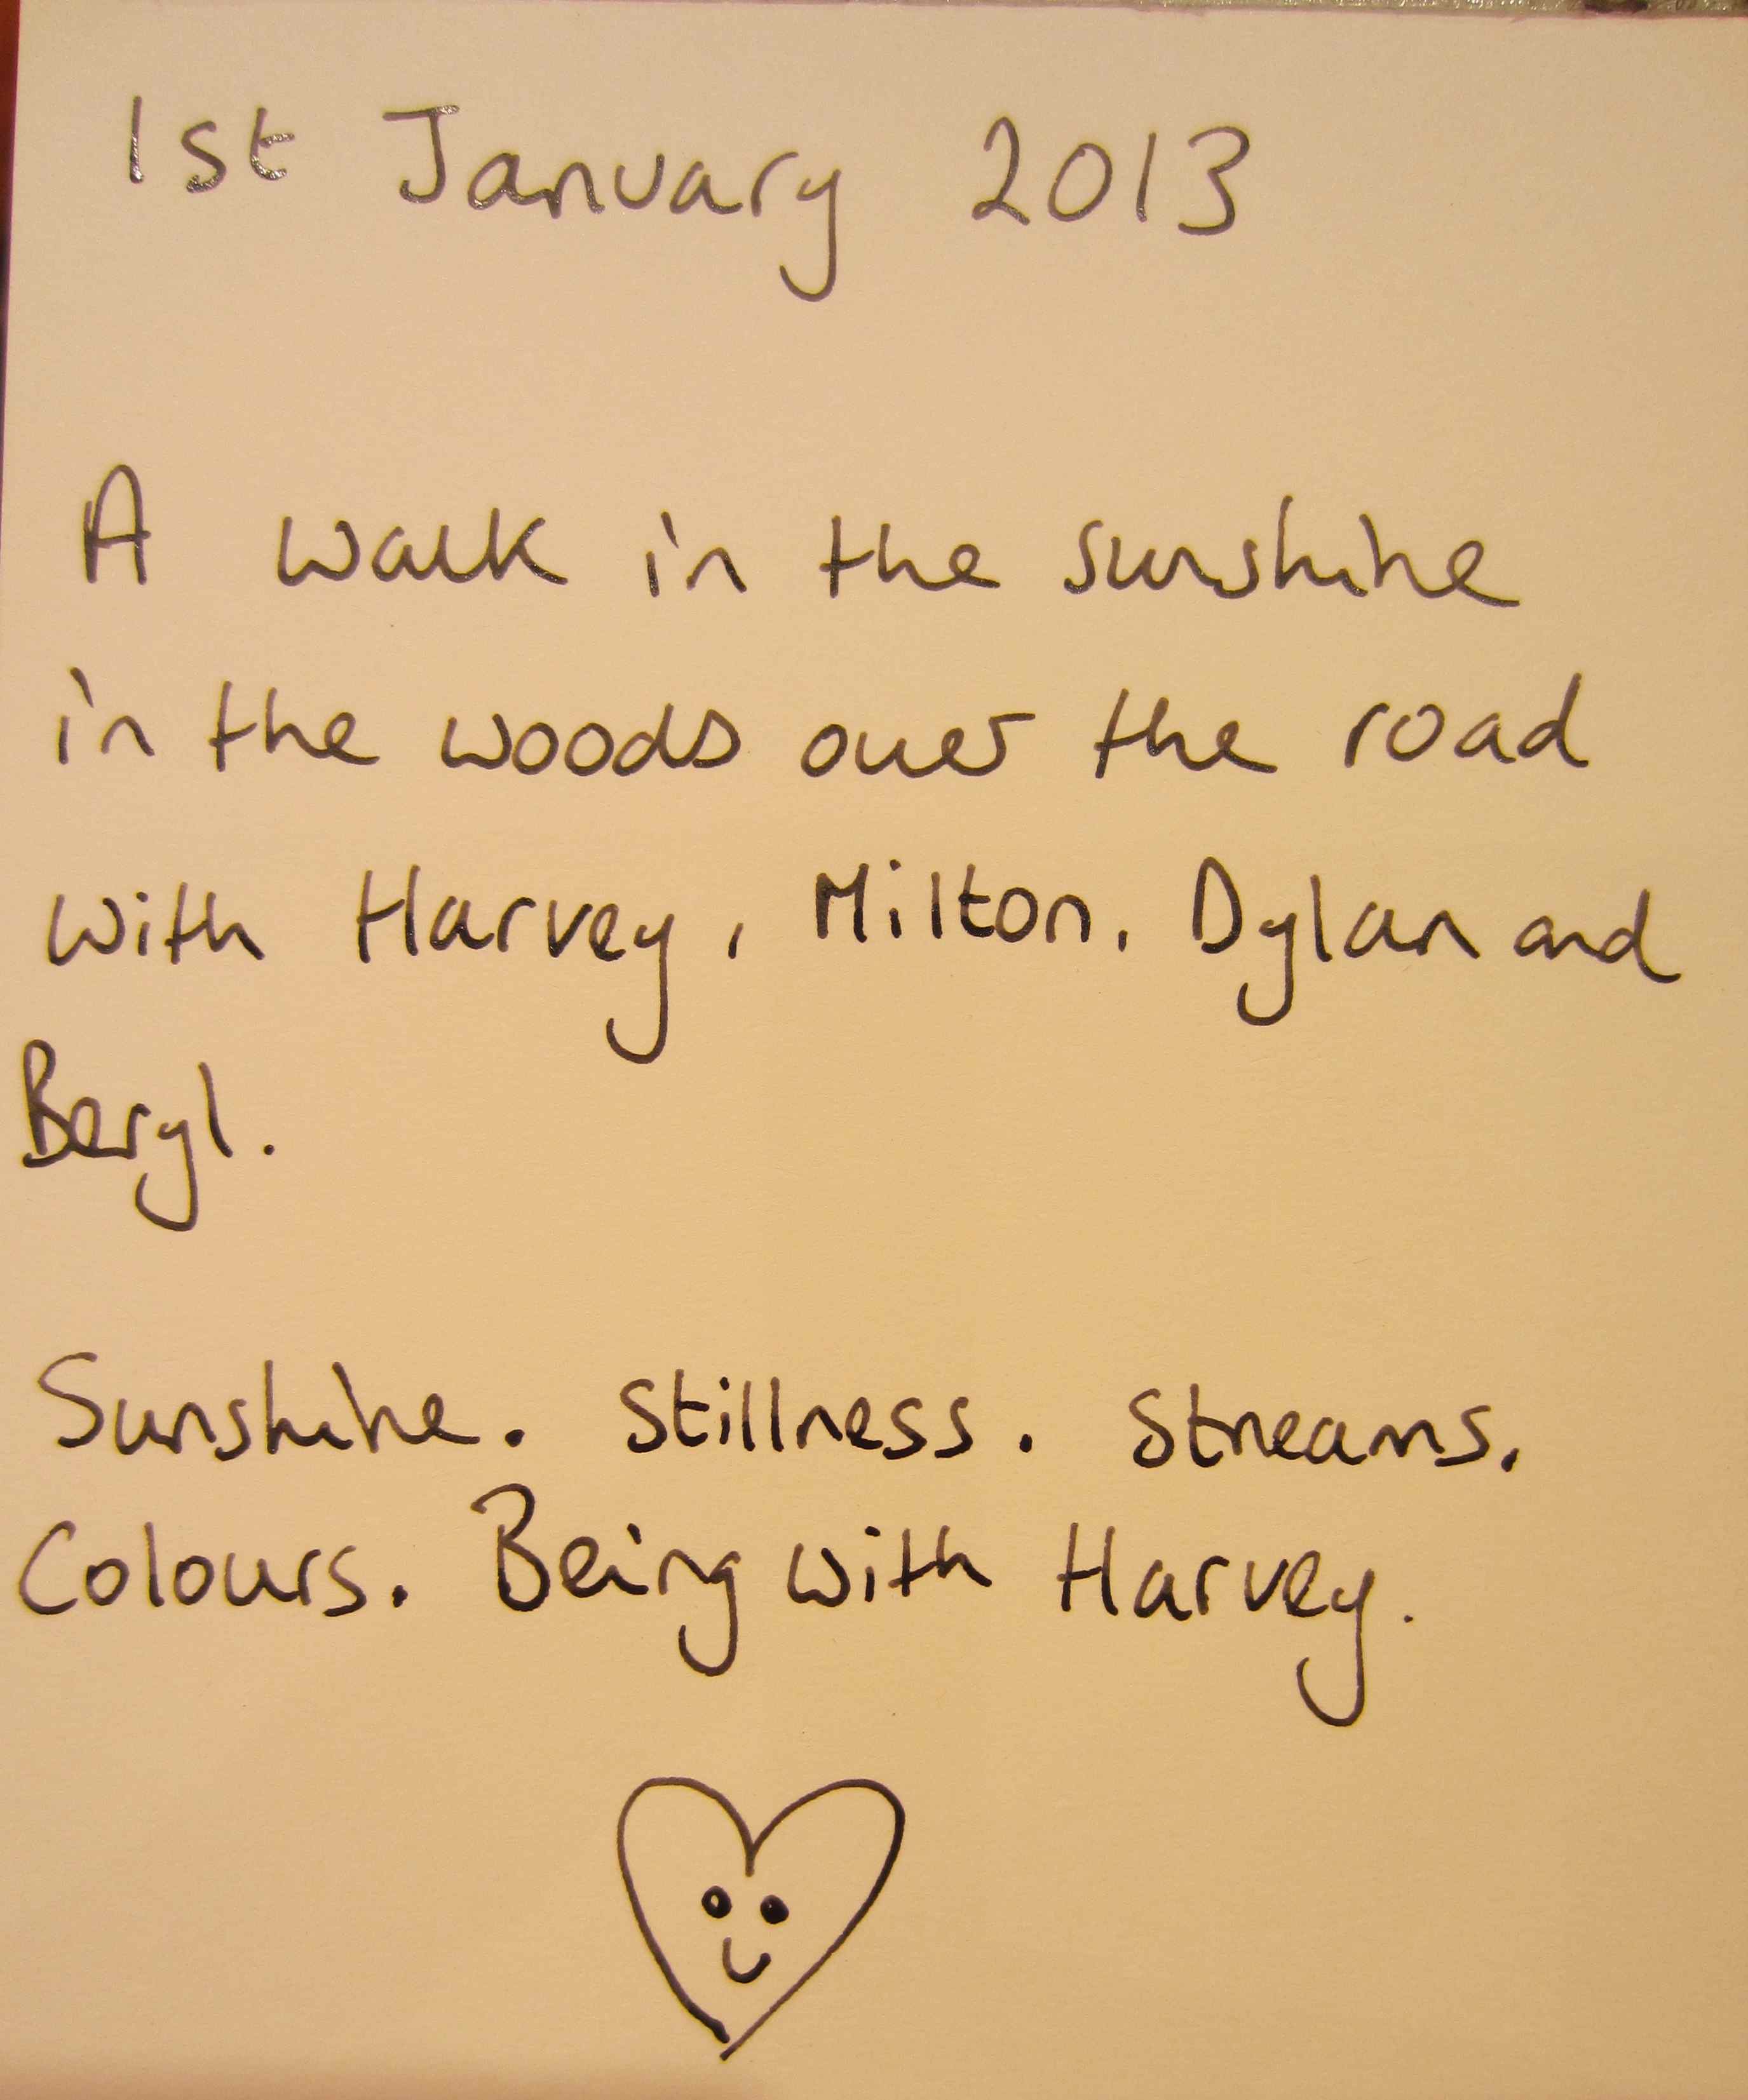 1st January 2013
A walk in the sunshine
in the woods over the road
with Harvey, Milton, Dylan and
Beryl.
Sunshine. Stillness. Streams.
Colours. Being with Harvey.